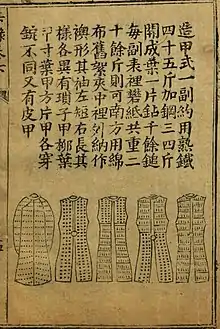 造甲式一副約用熟鐵
四十五斤加鋼三四斤
開成葉一片鉆千餘鎚
每副表裡礬紙共重二
十餘斤則可南方用綿
布舊絮夾中裡列納作
襖形其袖左短右長其
樣各異有瑣子甲柳葉
甲寸葉甲方片甲各穿
錠不同又有皮甲